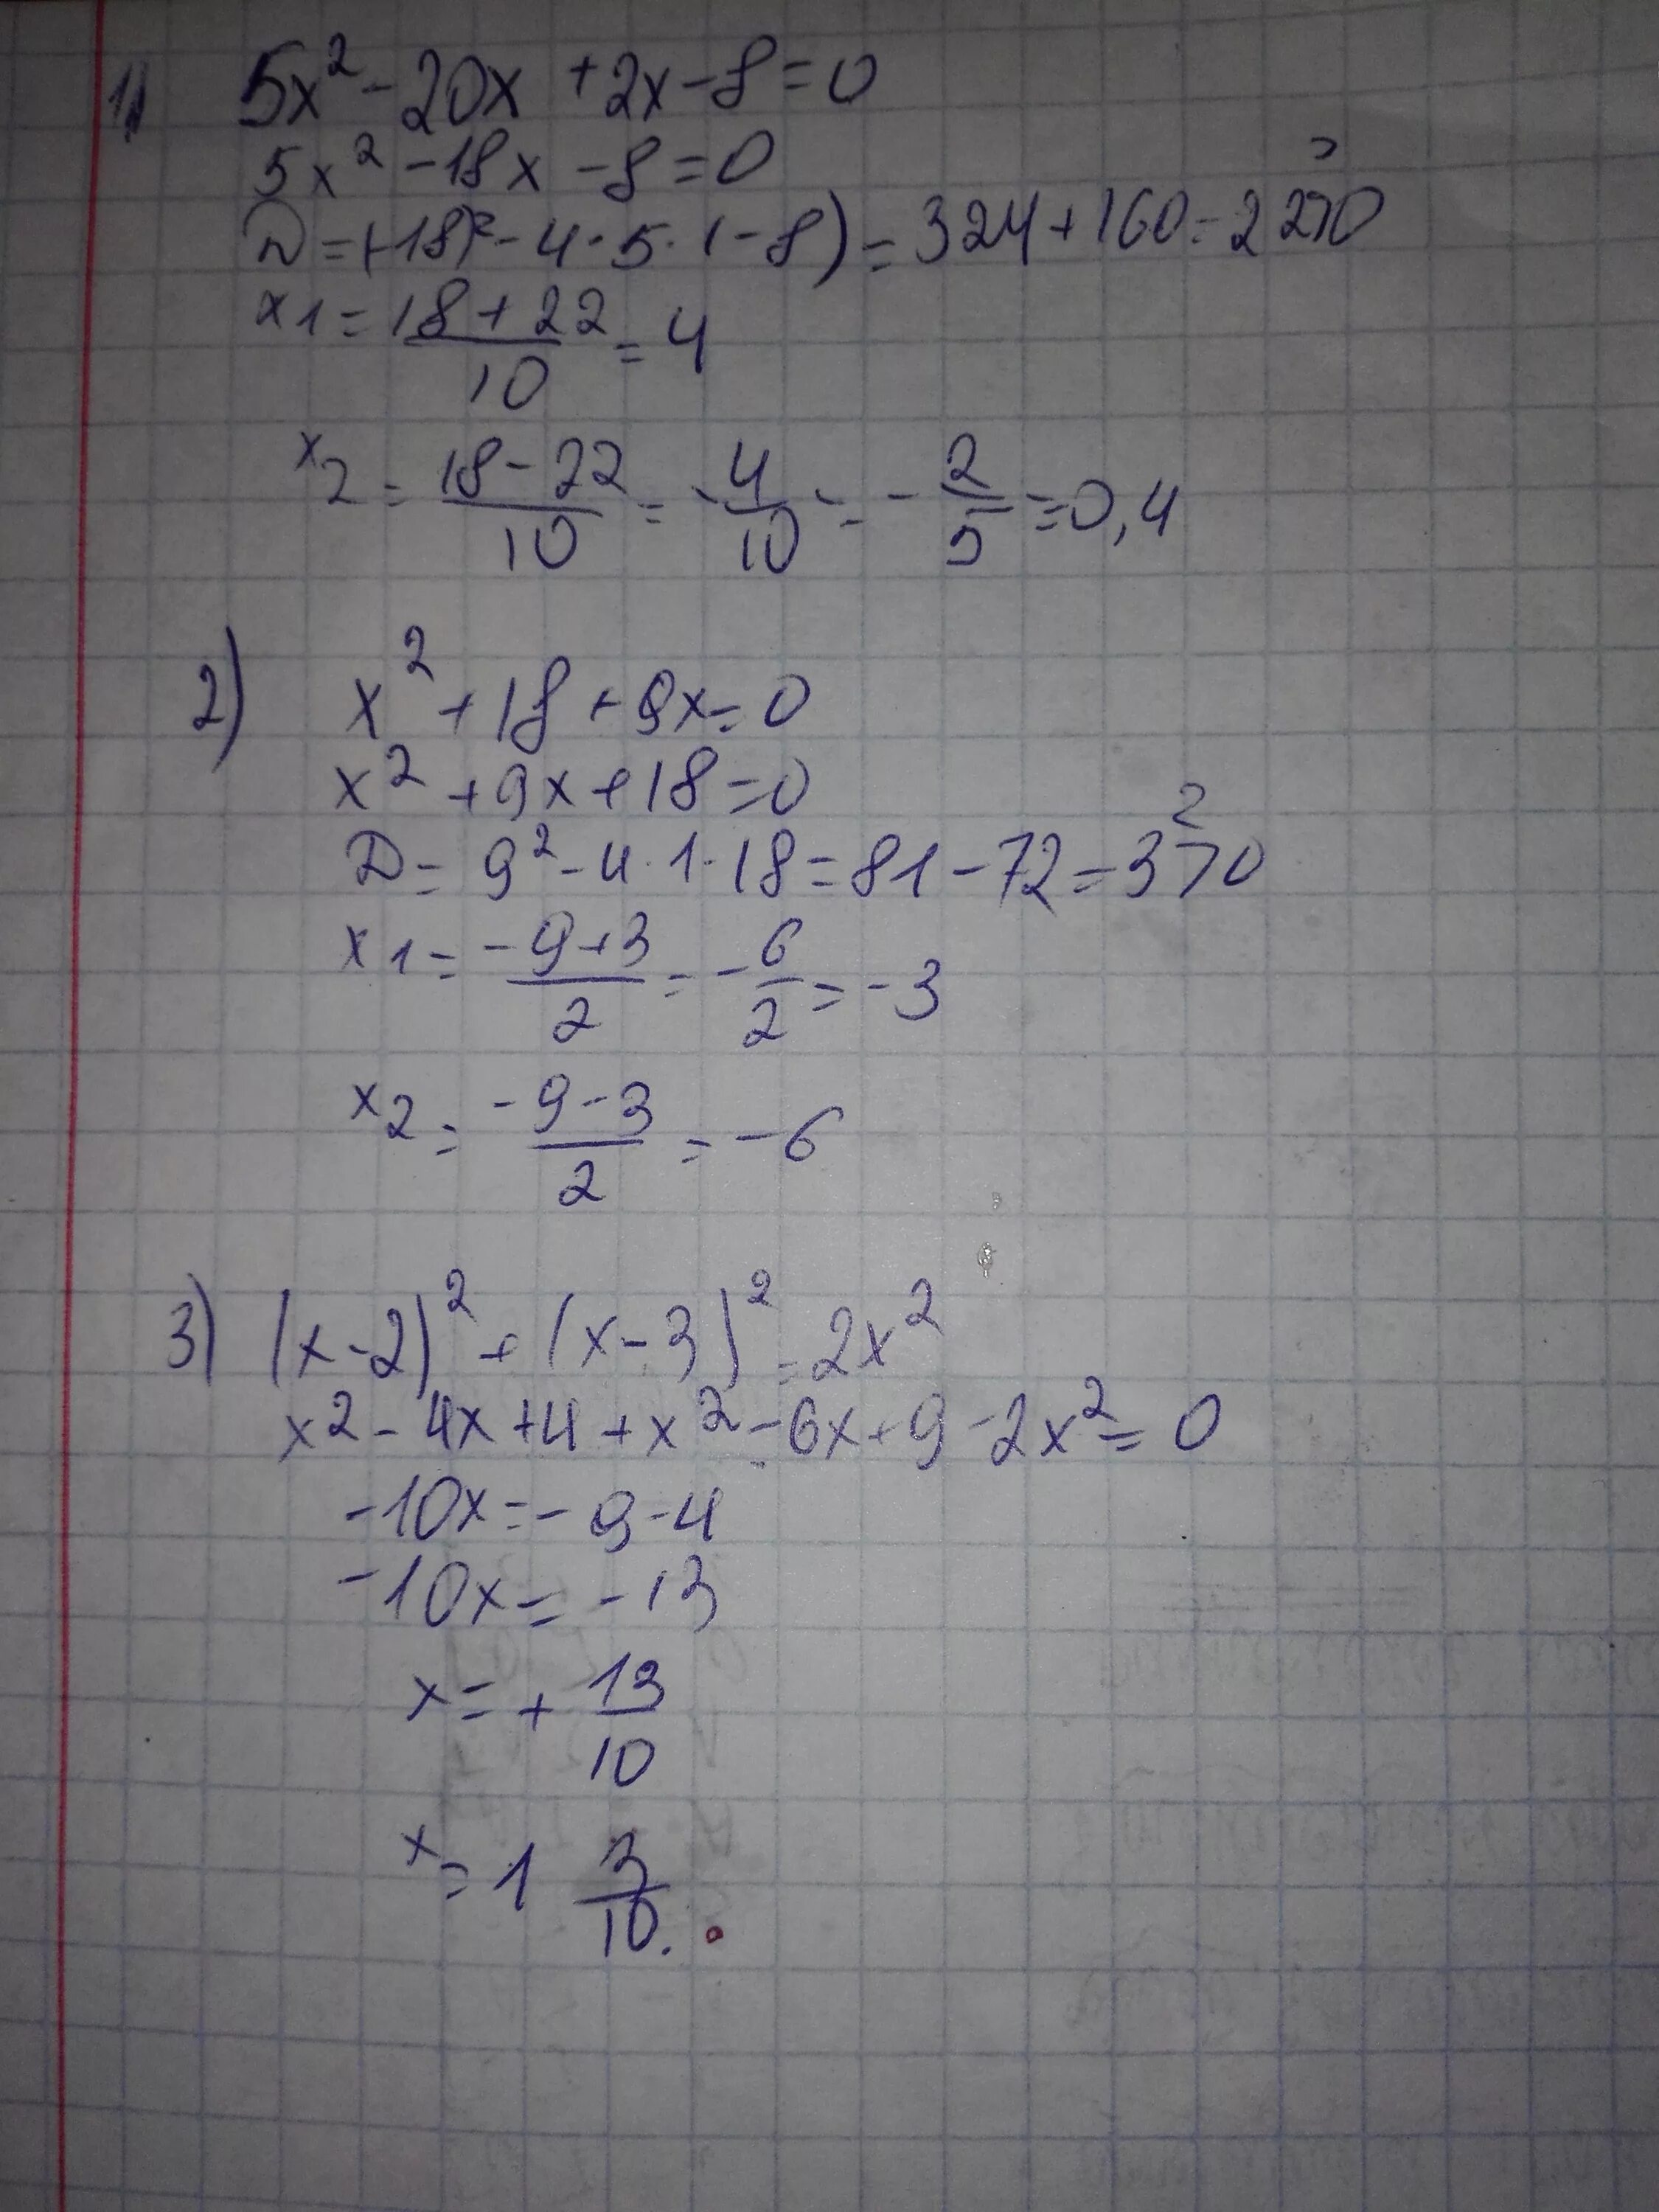 1) 5x² - 20x + 2x - 8 = 0
5x² - 18x - 8 = 0
D = (-18)² - 4 · 5 · (-8) = 324 + 160 = 22² > 0
x1 = 18 + 22 / 10 = 4
x2 = 18 - 22 / 10 = - 4/10 = - 2/5 = 0,4
2) x² + 18 + 9x = 0
x² + 9x + 18 = 0
D = 9² - 4 · 1 · 18 = 81 - 72 = 3² > 0
x1 = -9 + 3 / 2 = - 6/2 = -3
x2 = -9 - 3 / 2 = -6
3) (x - 2)² + (x - 3)² = 2x²
x² - 4x + 4 + x² - 6x + 9 - 2x² = 0
-10x = -9 - 4
-10x = -13
x = + 13/10
x = 1 3/10.